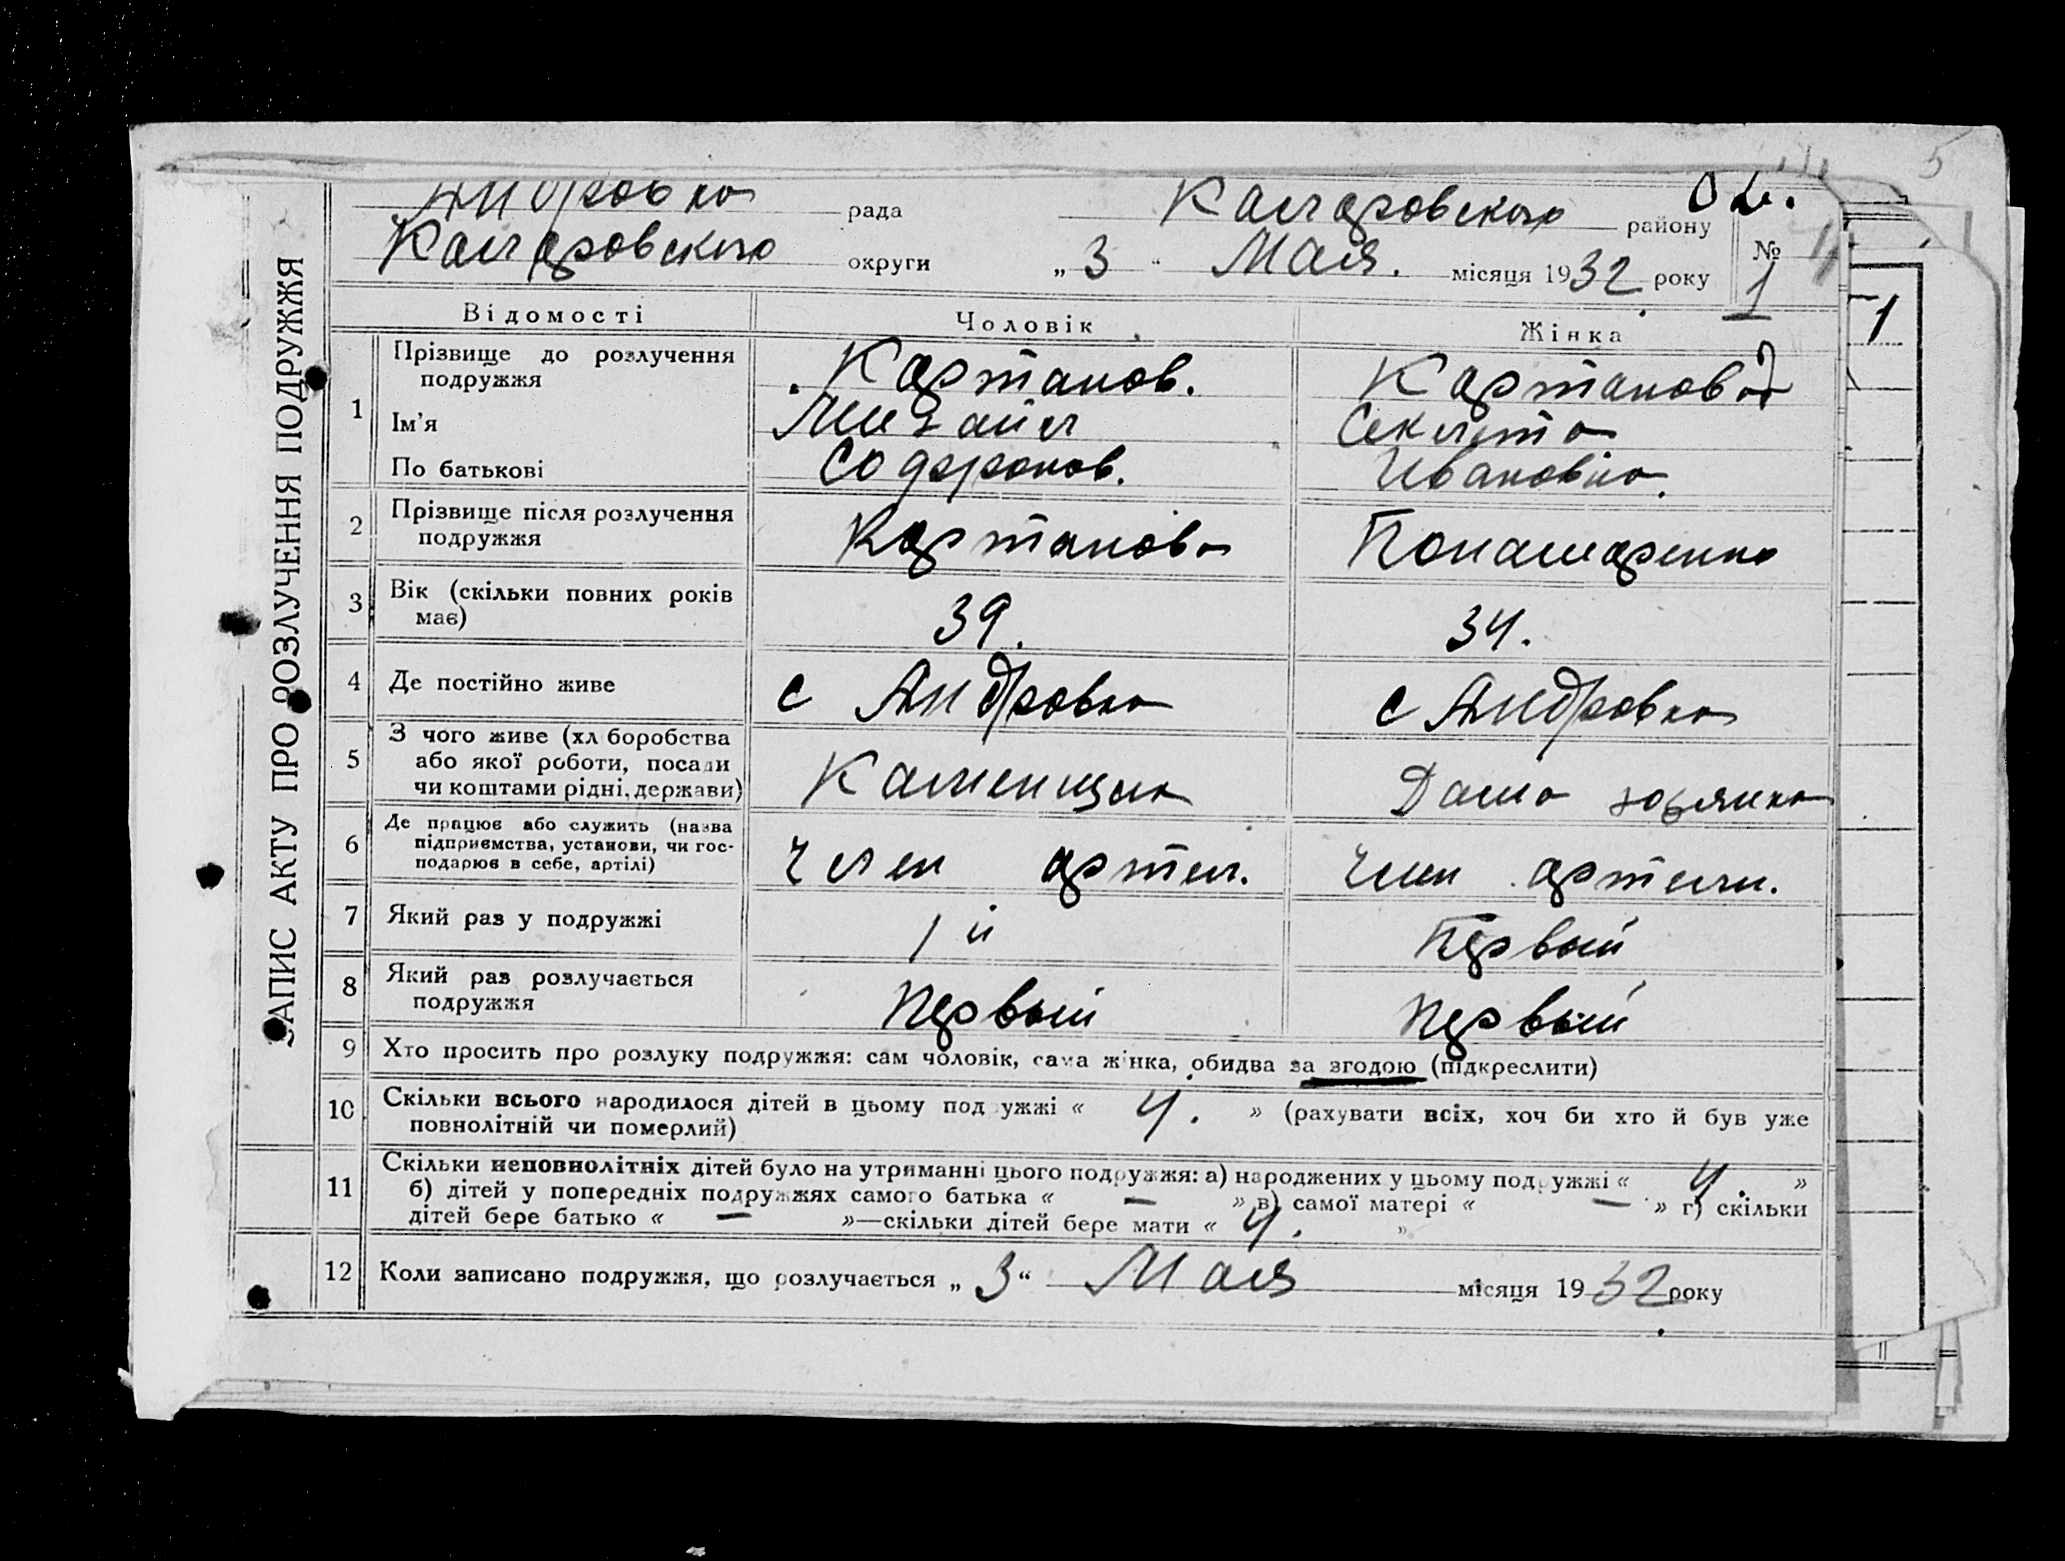 5
Андровка рада Каларовского району
Каларовского округи „ 3 “ Мая. місяця 1932 року № 1
1
ЗАПИС АКТУ ПРО РОЗЛУЧЕННЯ ПОДРУЖЖЯ
Відомості Чоловік Жінка
1 Прізвище до розлучення подружжя Картанов. Картанова
Ім'я Михаил Секлета
По батькові Софронов. Ивановна.
2 Прізвище після розлучення подружжя Картанова Понамаренко
3 Вік (скільки повних років має) 39. 34.
4 Де постійно живе с Андровка с Андровка
5 З чого живе (хл боробства або якої роботи, посади чи коштами рідні, держави) Каменщик Дама хозяика
6 Де працює або служить (назва підприємства, установи, чи господарює в себе, артілі) Член артел. Член артели.
7 Який раз у подружжі 1й Первый
8 Який раз розлучається подружжя Первый Первый
9 Хто просить про розлуку подружжя: сам чоловік, сама жінка, обидва за згодою (підкреслити)
10 Скільки всього народилося дітей в цьому подружжі « 4. » (рахувати всіх, хоч би хто й був уже
повнолітній чи померлий)
11 Скільки неповнолітніх дітей було на утриманні цього подружжя: а) народжених у цьому подружжі « 4. »
б) дітей у попередніх подружжях самого батька « — » в) самої матері « — » г) скільки
дітей бере батько « — »—скільки дітей бере мати « 4. »
12 Коли записано подружжя, що розлучається „ 3 “ Мая місяця 1932 року